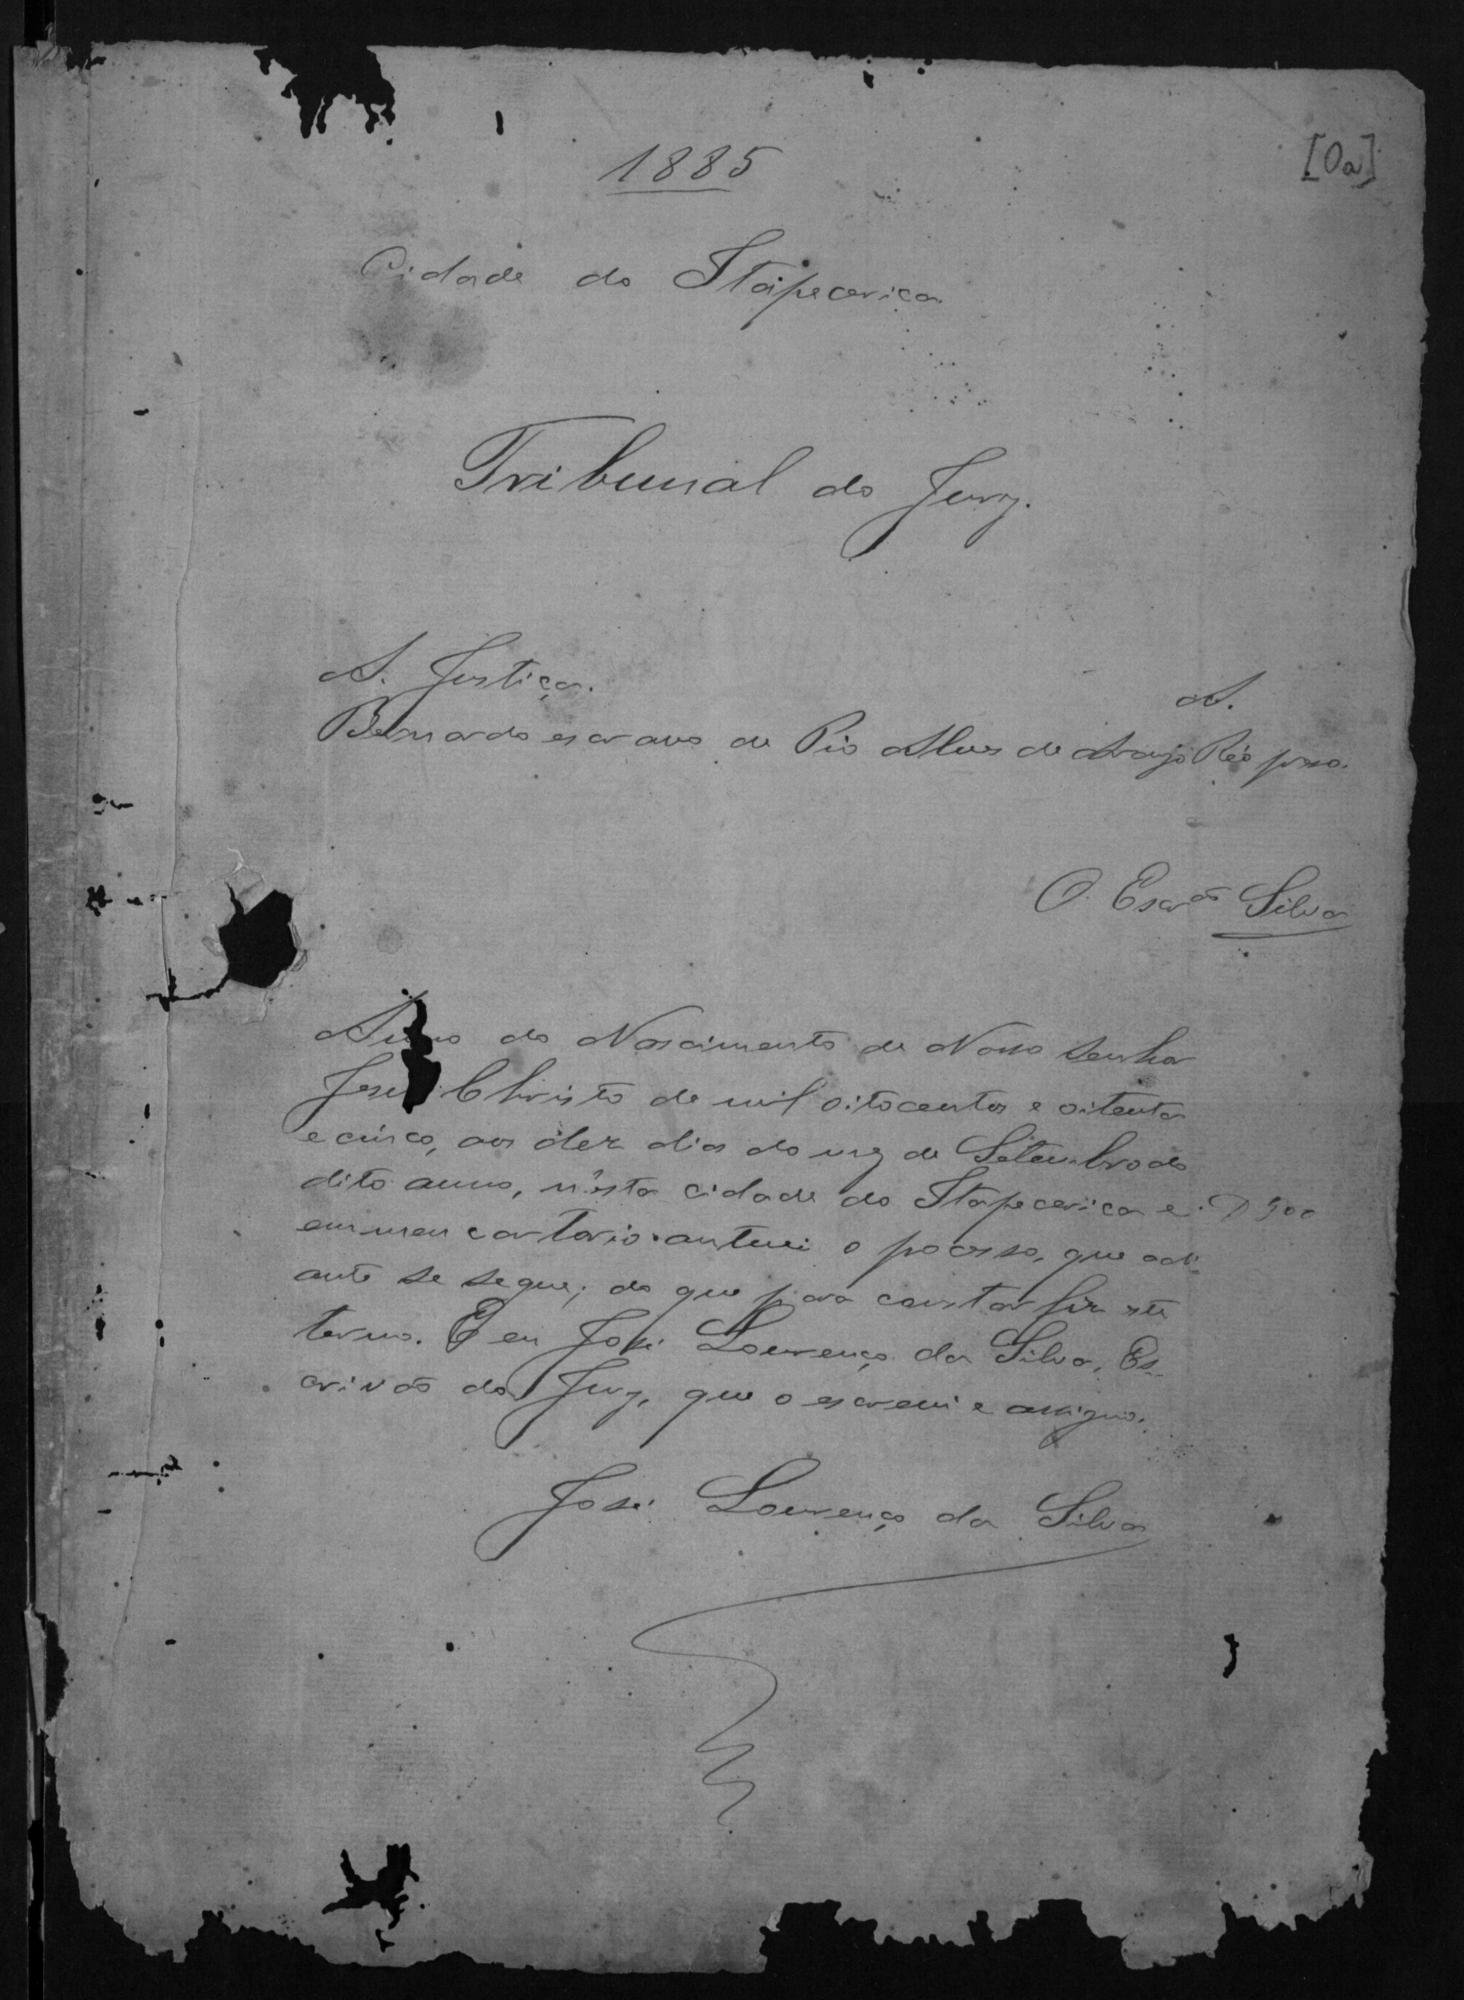 1885
[0a]
Cidade do Itapecerica
Tribunal do Jury.
A. Justiça.
A.
Bernardo escravo de Pio Alves de Araujo Réo preso.
O Escr.ão Silva
Anno do Nascimento de Nosso Senhor
Jesus Christo de mil oitocentos e oitenta
e cinco, aos dez dias do mez de Setembro do
dito anno, n'esta cidade do Itapecerica e
em meu cartorio autuei o processo, que adi-
ante se segue; do que para constar fiz este
termo. E eu José Lourenço da Silva, Es-
crivão do Jury, que o escrevi e assigno.
José Lourenço da Silva